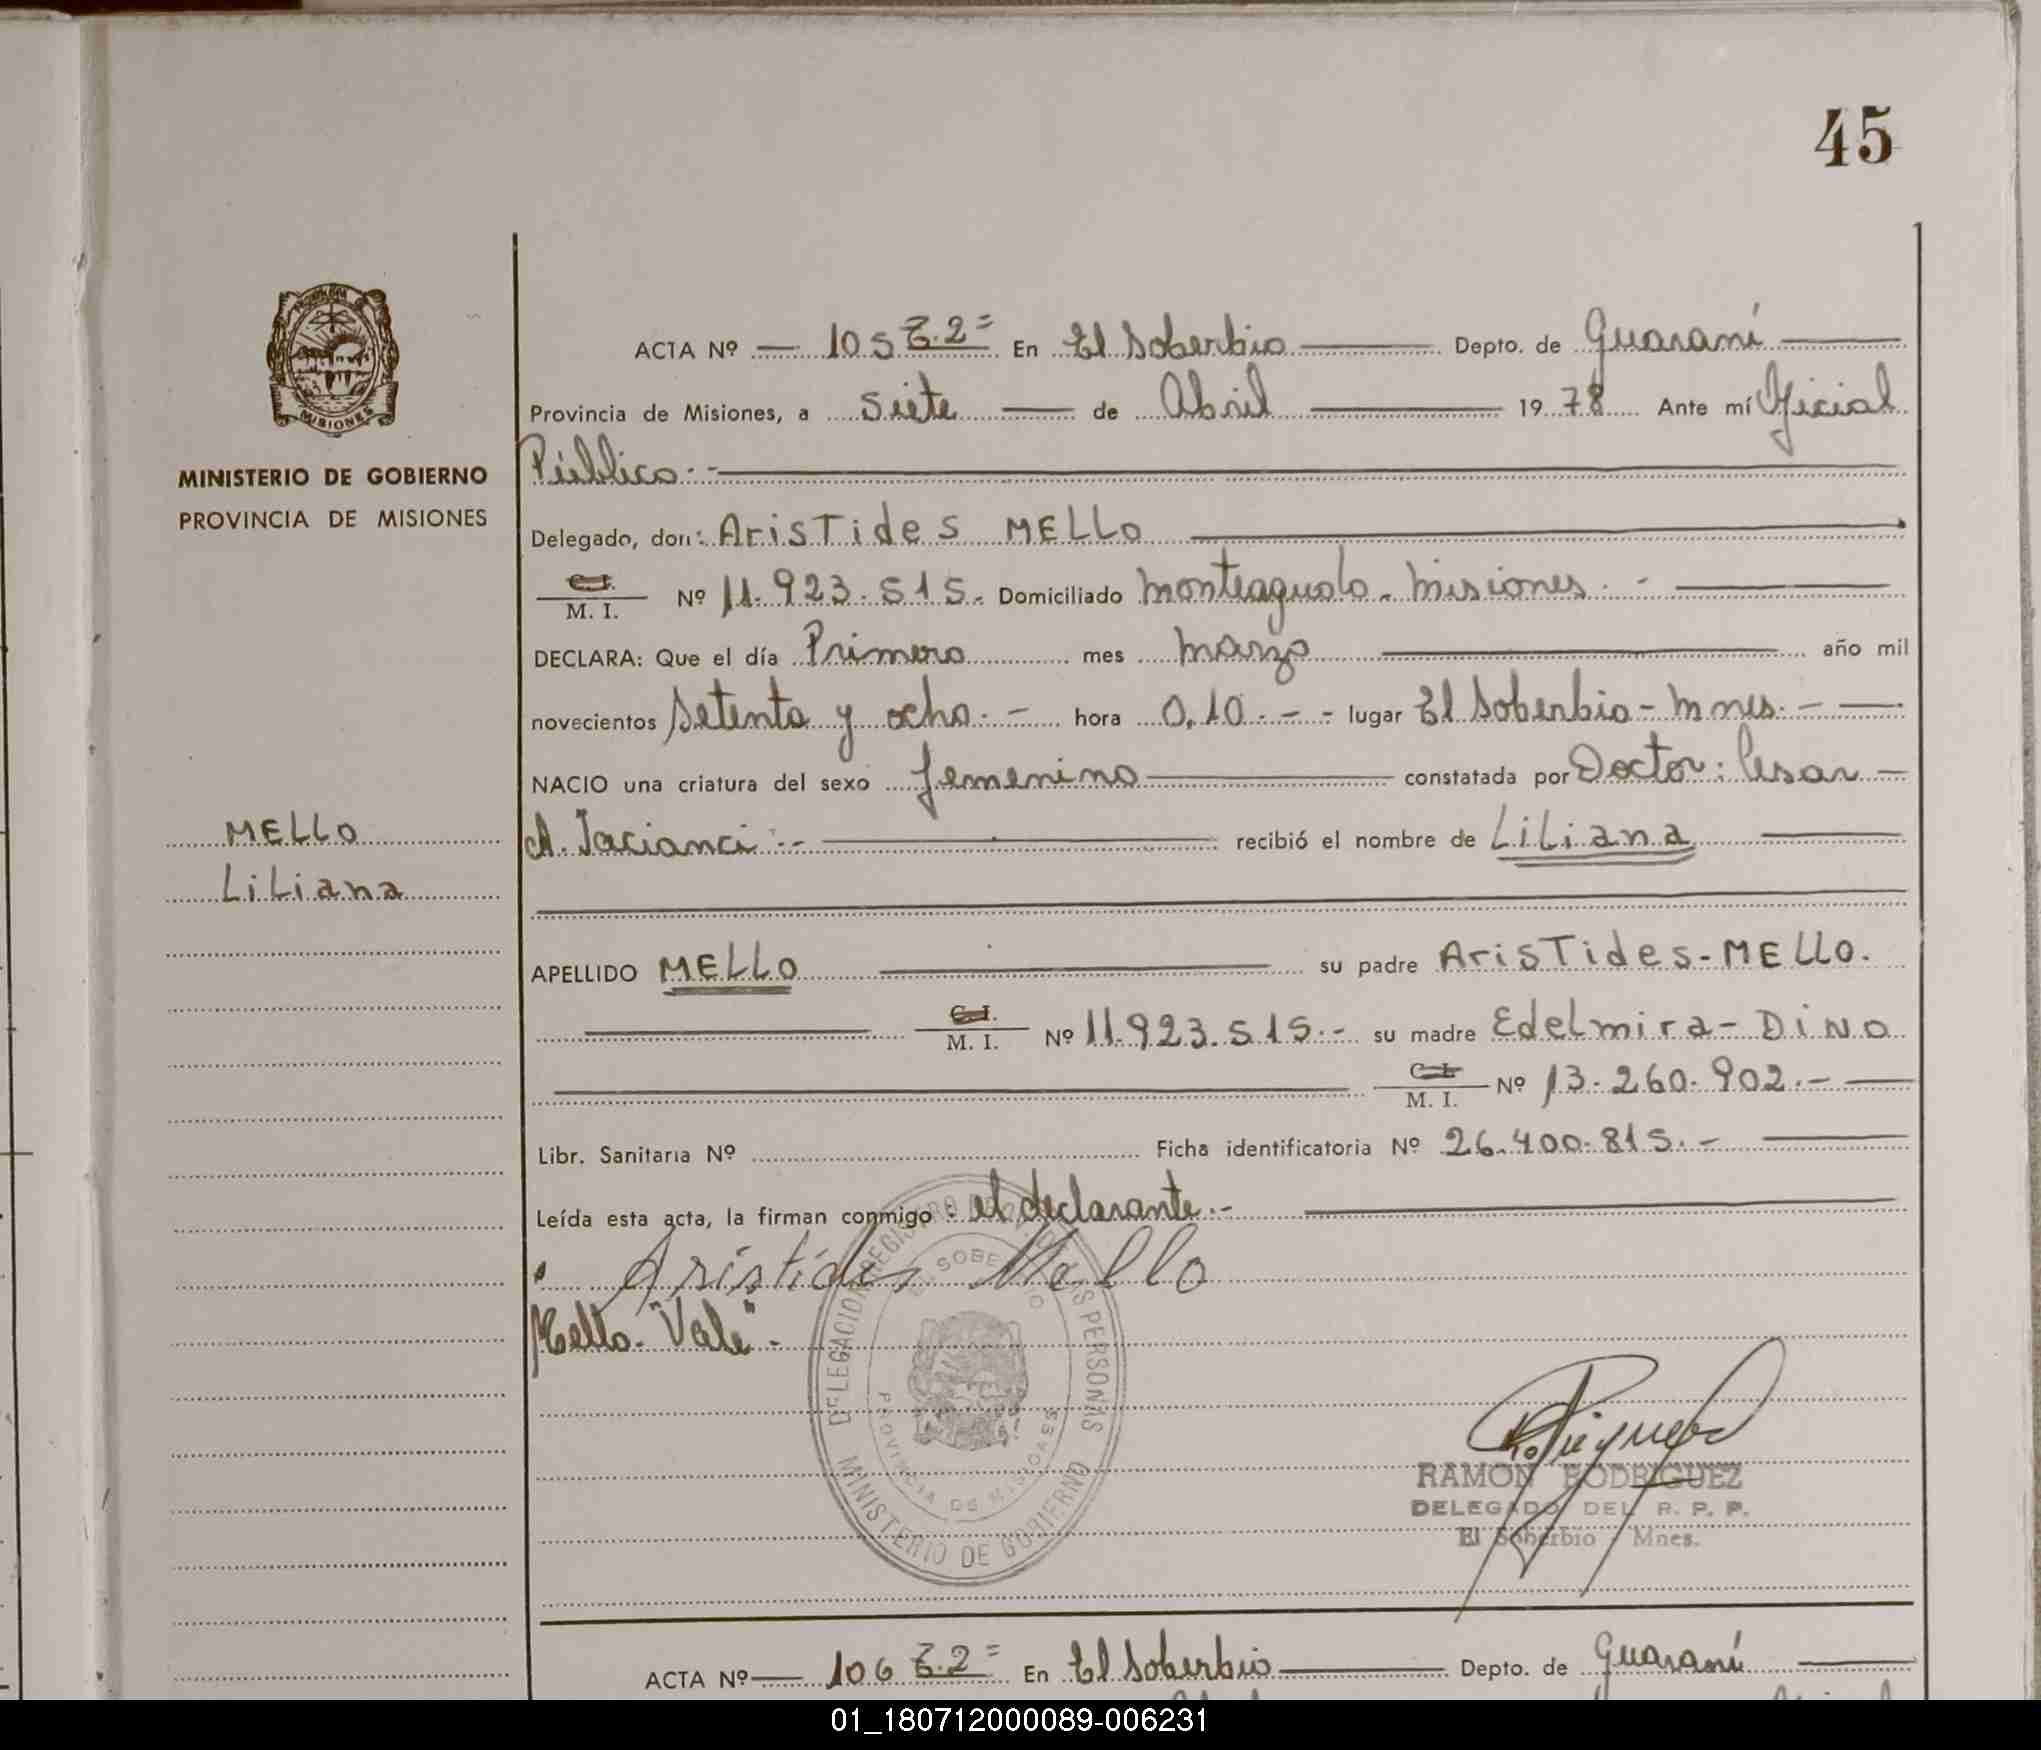 45
ACTA Nº 105 Z.2= En El Soberbio Depto. de Guaraní
Provincia de Misiones, a siete de Abril 1978 Ante mí Oficial
Público.-
MINISTERIO DE GOBIERNO
PROVINCIA DE MISIONES
MISIONES
Delegado, don: Aristides MELLO
C. I.
M. I. Nº 11.923.515.- Domiciliado Monteagudo - Misiones.-
DECLARA: Que el día Primero mes marzo año mil
novecientos setenta y ocho.- hora 0,10.- - lugar El Soberbio - Mnes.-
NACIO una criatura del sexo femenino constatada por Doctor: Cesar
MELLO
Liliana
A. Jacianci.- recibió el nombre de Liliana
APELLIDO MELLO su padre Aristides - MELLO.
C. I.
M. I. Nº 11.923.515.- su madre Edelmira - DiNO
C. I.
M. I. Nº 13.260.902.-
Libr. Sanitaria Nº Ficha identificatoria Nº 26.400.815.-
Leída esta acta, la firman conmigo: el declarante.-
Aristides Mello
Mello. "Vale".-
DELEGACION REGISTRO PERSONAS
EL SOBERBIO
PROVINCIA DE MISIONES
MINISTERIO DE GOBIERNO
RAMON RODRIGUEZ
DELEGADO DEL R. P. P.
El Soberbio - Mnes.
ACTA Nº 106 Z.2= En El Soberbio Depto. de Guaraní
01_180712000089-006231